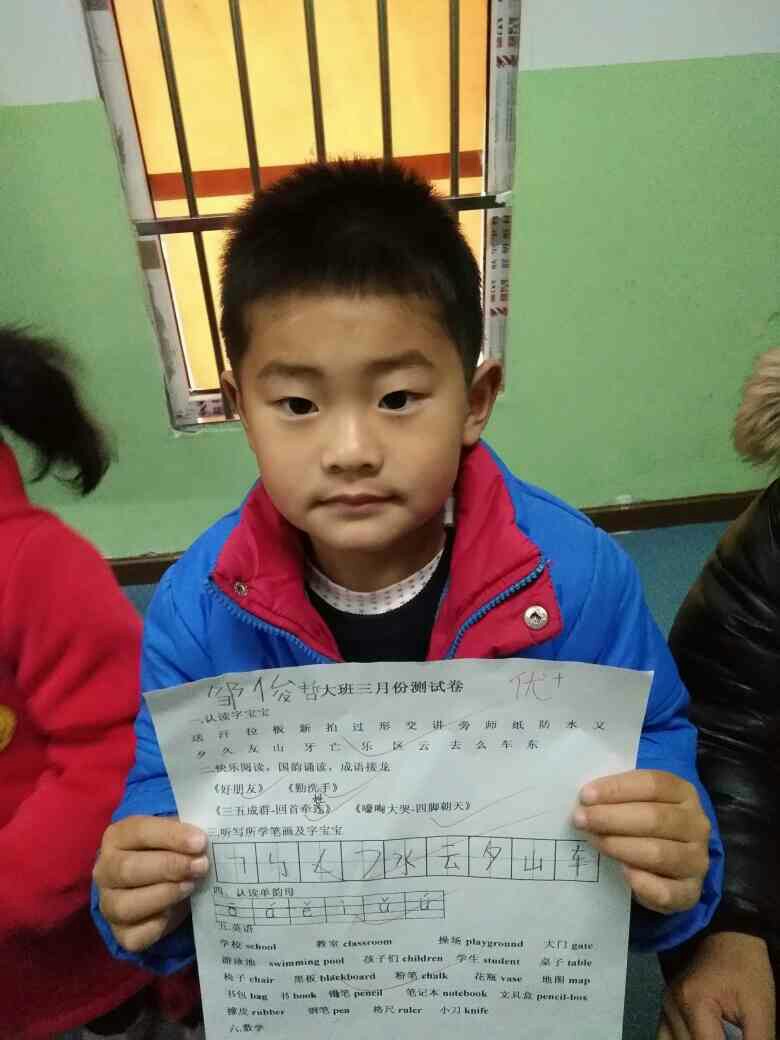 邹俊哲大班三月份测试卷 优+
一.认读字宝宝
送 汗 拉 板 新 拍 过 形 交 讲 旁 师 纸 防 水 又
夕 久 友 山 牙 亡 乐 区 云 去 么 车 东
二.快乐阅读,国韵诵读,成语接龙
《好朋友》 《勤洗手》
《三五成群-回首牵连》 《嚎啕大哭-四脚朝天》
三.听写所学笔画及字宝宝
水 去 夕 山 车
四、认读单韵母
ō á ě ì ǔ
五.英语
学校 school 教室 classroom 操场 playground 大门 gate
游泳池 swimming pool 孩子们 children 学生 student 桌子 table
椅子 chair 黑板 blackboard 粉笔 chalk 花瓶 vase 地图 map
书包 bag 书 book 铅笔 pencil 笔记本 notebook 文具盒 pencil-box
橡皮 rubber 钢笔 pen 格尺 ruler 小刀 knife
六.数学